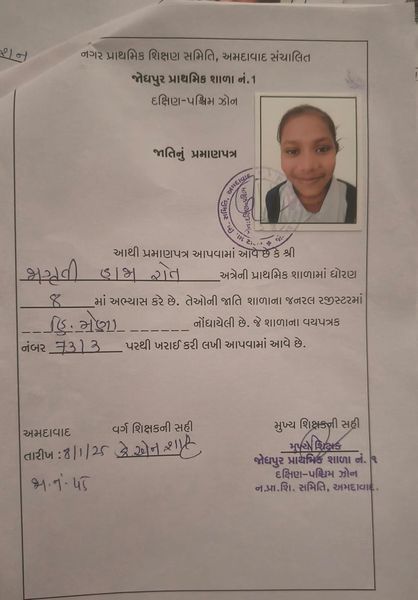 નગર પ્રાથમિક શિક્ષણ સમિતિ, અમદાવાદ સંચાલિત
જોધપુર પ્રાથમિક શાળા નં.1
દક્ષિણ-પશ્ચિમ ઝોન
જાતિનું પ્રમાણપત્ર
આથી પ્રમાણપત્ર આપવામાં આવે છે કે શ્રી
અત્રેની પ્રાથમિક શાળામાં ધોરણ
માં અભ્યાસ કરે છે. તેઓની જાતિ શાળાના જનરલ રજીસ્ટરમાં
હિ. મેણા નોંધાયેલી છે. જે શાળાના વયપત્રક
નંબર 7313 પરથી ખરાઈ કરી લખી આપવામાં આવે છે.
અમદાવાદ વર્ગ શિક્ષકની સહી મુખ્ય શિક્ષકની સહી
તારીખ : 8/1/25
મુખ્ય શિક્ષક
જોધપુર પ્રાથમિક શાળા નં. ૧
દક્ષિણ-પશ્ચિમ ઝોન
ન.પ્રા.શિ. સમિતિ, અમદાવાદ.